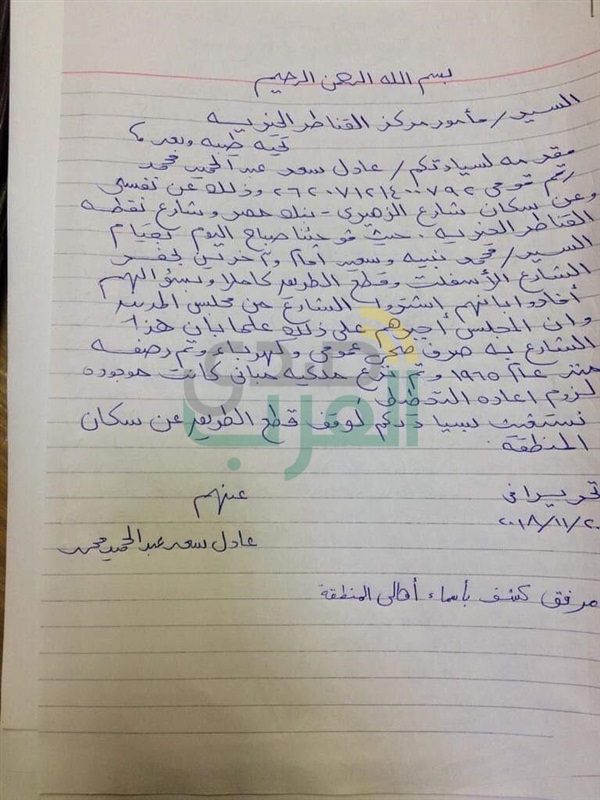 بسم الله الرحمن الرحيم
السيد / مأمور مركز القناطر الخيرية
تحيه طيبه وبعد ،،
مقدمه لسيادتكم / عادل سعد عبد الحميد محمد
رقم قومى ٢٦٢٠٧١٢١٤٠٠٧٩٢ وذلك عن نفسى
وعن سكان شارع الزهيرى - بنك مصر وشارع نقطه
القناطر الخيريه . حيث فوجئنا صباح اليوم بقيام
السيد / محمد نبيه وسعيد امام وآخرين بحفر
الشارع الأسفلت وقطع الطريق كاملا وبسؤالهم
أفادوا بانهم اشتروا الشارع من مجلس المدينه
وان المجلس أجبرهم على ذلك علما بأن هذا
الشارع به صرف صحى عمومى وكهرباء وتم رصفه
منذ عام ١٩٦٥ وتم نزع ملكيه مبانى كانت موجوده
لزوم اعاده التخطيط .
نستغيث بسيادتكم لوقف قطع الطريق عن سكان
المنطقه
تحريرا فى
عنهم
٢٠١٨/١١/٢٠
عادل سعد عبد الحميد محمد
مرفق كشف بأسماء أهالى المنطقة
صدى
العرب